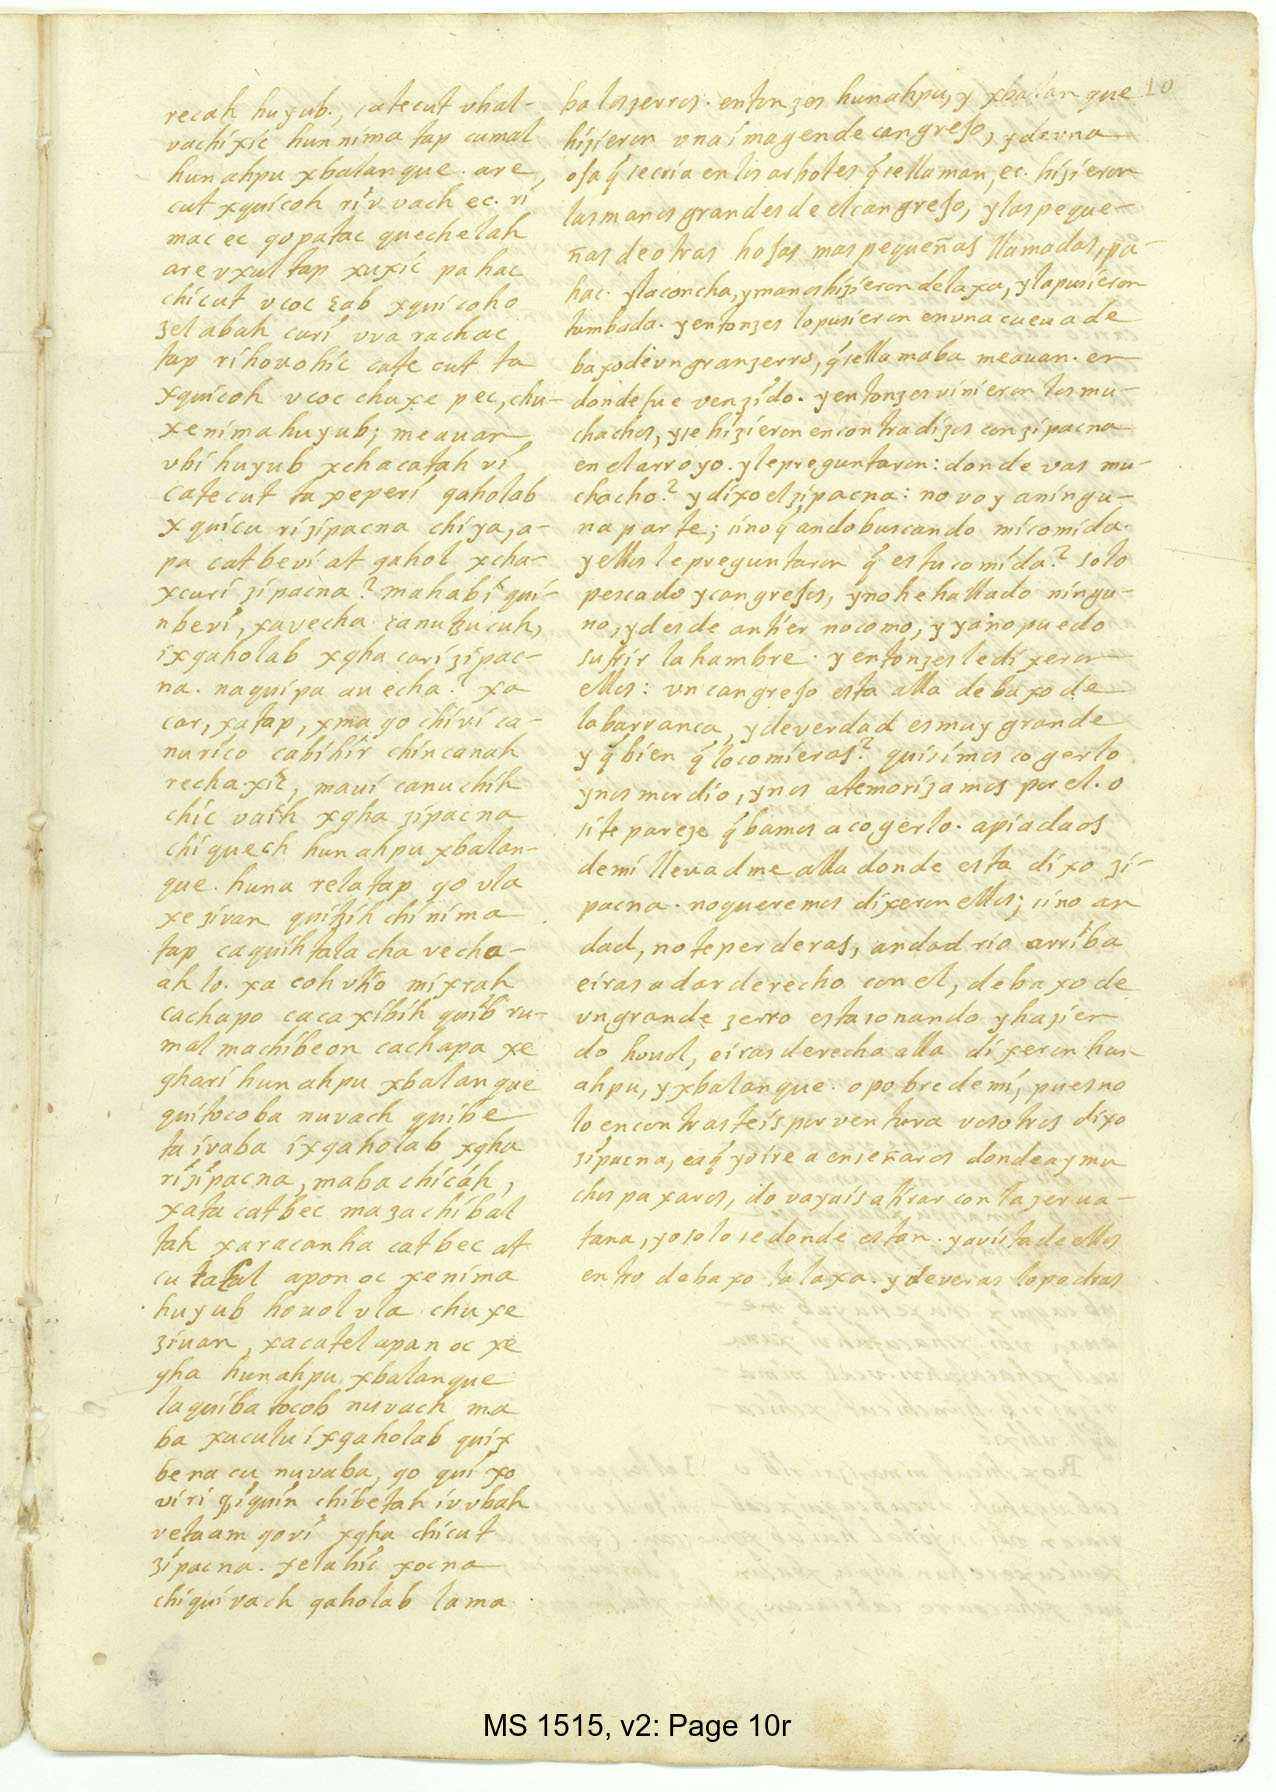 10
recah huyub., catecut vhal-
vachixic hun nima tap cumal
hunahpu xbalanque. are,
cut xquicoh ri v vach ec. ri
mac ec qo patac quechelah
are v xul tap xuxic pahac
chicut v coc εab xquicoho
zel abah curi v va rachac
tap rihouohic cate cut ta
xquicoh v coc chuxe pec, chu-
xe nima huyub; meauan
v bi huyub xchacatah vi
catecut ta xeperi qaholab
xquicu ri zipacna chiya, a-
pa catbevi at qahol xcha-
xcuri zipacna? mahabi qui-
nbevi, xavecha canutzucuh,
ix qaholab xqha cari zipac-
na. naquipa au echa? xa
car, xa tap, xma qo chivi ca-
nurico cabihir chincanah
rechaxic, mavi canuchih
chic vaih xqha zipacna
chiquech hunahpu xbalan-
que. huna rela tap qo vla
xe zivan quitzih chi nima
tap caquihtala cha vecha-
ah lo. xa coh vtio mixrah
cachapo cacaxibih quib ru-
mal machibeon cachapa xe
qhari hunahpu xbalanque
quitocoba nuvach quibe
ta ivaba ix qaholab xqha
ri zipacna, maba chicah,
xata catbec mazachibal
tah xaracanha catbec at
cu tatal apon oc xe nima
huyub houol vla chuxe
zivan, xacatel apan oc xe
qha hunahpu xbalanque
laquiba tocob nuvach ma
ba xuculu ix qaholab quix
bena cu nuvaba, qo qui xo
viri qiquin chibetah ivvbah
vetaam qo vi xqha chicut
zipacna. xelahic xocna
chiquivach qaholab lama
ba los zerros. entonzes hunahpu, y xbalan que
hizieron vna imagen de cangrejo, y de vna
oja q̃ se cria en los arboles q̃ se llaman, ec. hizieron
las manos grandes de el cangrejo, y las peque-
ñas de otras hojas mas pequeñas llamadas, pa-
hac. y la concha, y manos hizieron de laxa, y la pusieron
tumbada. y entonzes lo pusieron en vna cueua de
baxo de vn gran zerro, q̃ se llamaba meauan. en
donde fue venzido. y entonzes vinieron los mu-
chachos, y se hizieron encontradizos con zipacna
en el arroyo. y le preguntaron: donde vas mu-
chacho? y dixo el zipacna: no voy a ningu-
na parte; sino q̃ ando buscando mi comida.
y ellos le preguntaron q̃ es tu comida? solo
pescado y cangrejos, y no he hallado ningu-
no, y desde antier no como, y ya no puedo
sufrir la hambre. y entonzes le dixeron
ellos: vn cangrejo esta alla debaxo de
la barranca, y de verdad es muy grande
y q̃ bien q̃ lo comieras? quisimos cogerlo
y nos mordio, y nos atemorizamos por el. o
si te pareze q̃ bamos a cogerlo. apiadaos
de mi llevadme alla donde esta dixo zi-
pacna. no queremos dixeron ellos; sino an
dad, no te perderas, andad rio arriba
e iras a dar derecho con el, debaxo de
vn grande zerro esta sonando y hazien
do houol, e iras derecho alla dixeron hun
ahpu, y xbalanque. o pobre de mi, pues no
lo encontrasteis por ventura vosotros dixo
zipacna, ea q̃ yo ire a enseñaros donde ay mu
chos paxaros, do vayais a tirar con la zerua-
tana, yo solo se donde estan. y a vista de ellos
entro debaxo la laxa. y deveras lo podras
MS 1515, v2: Page 10r